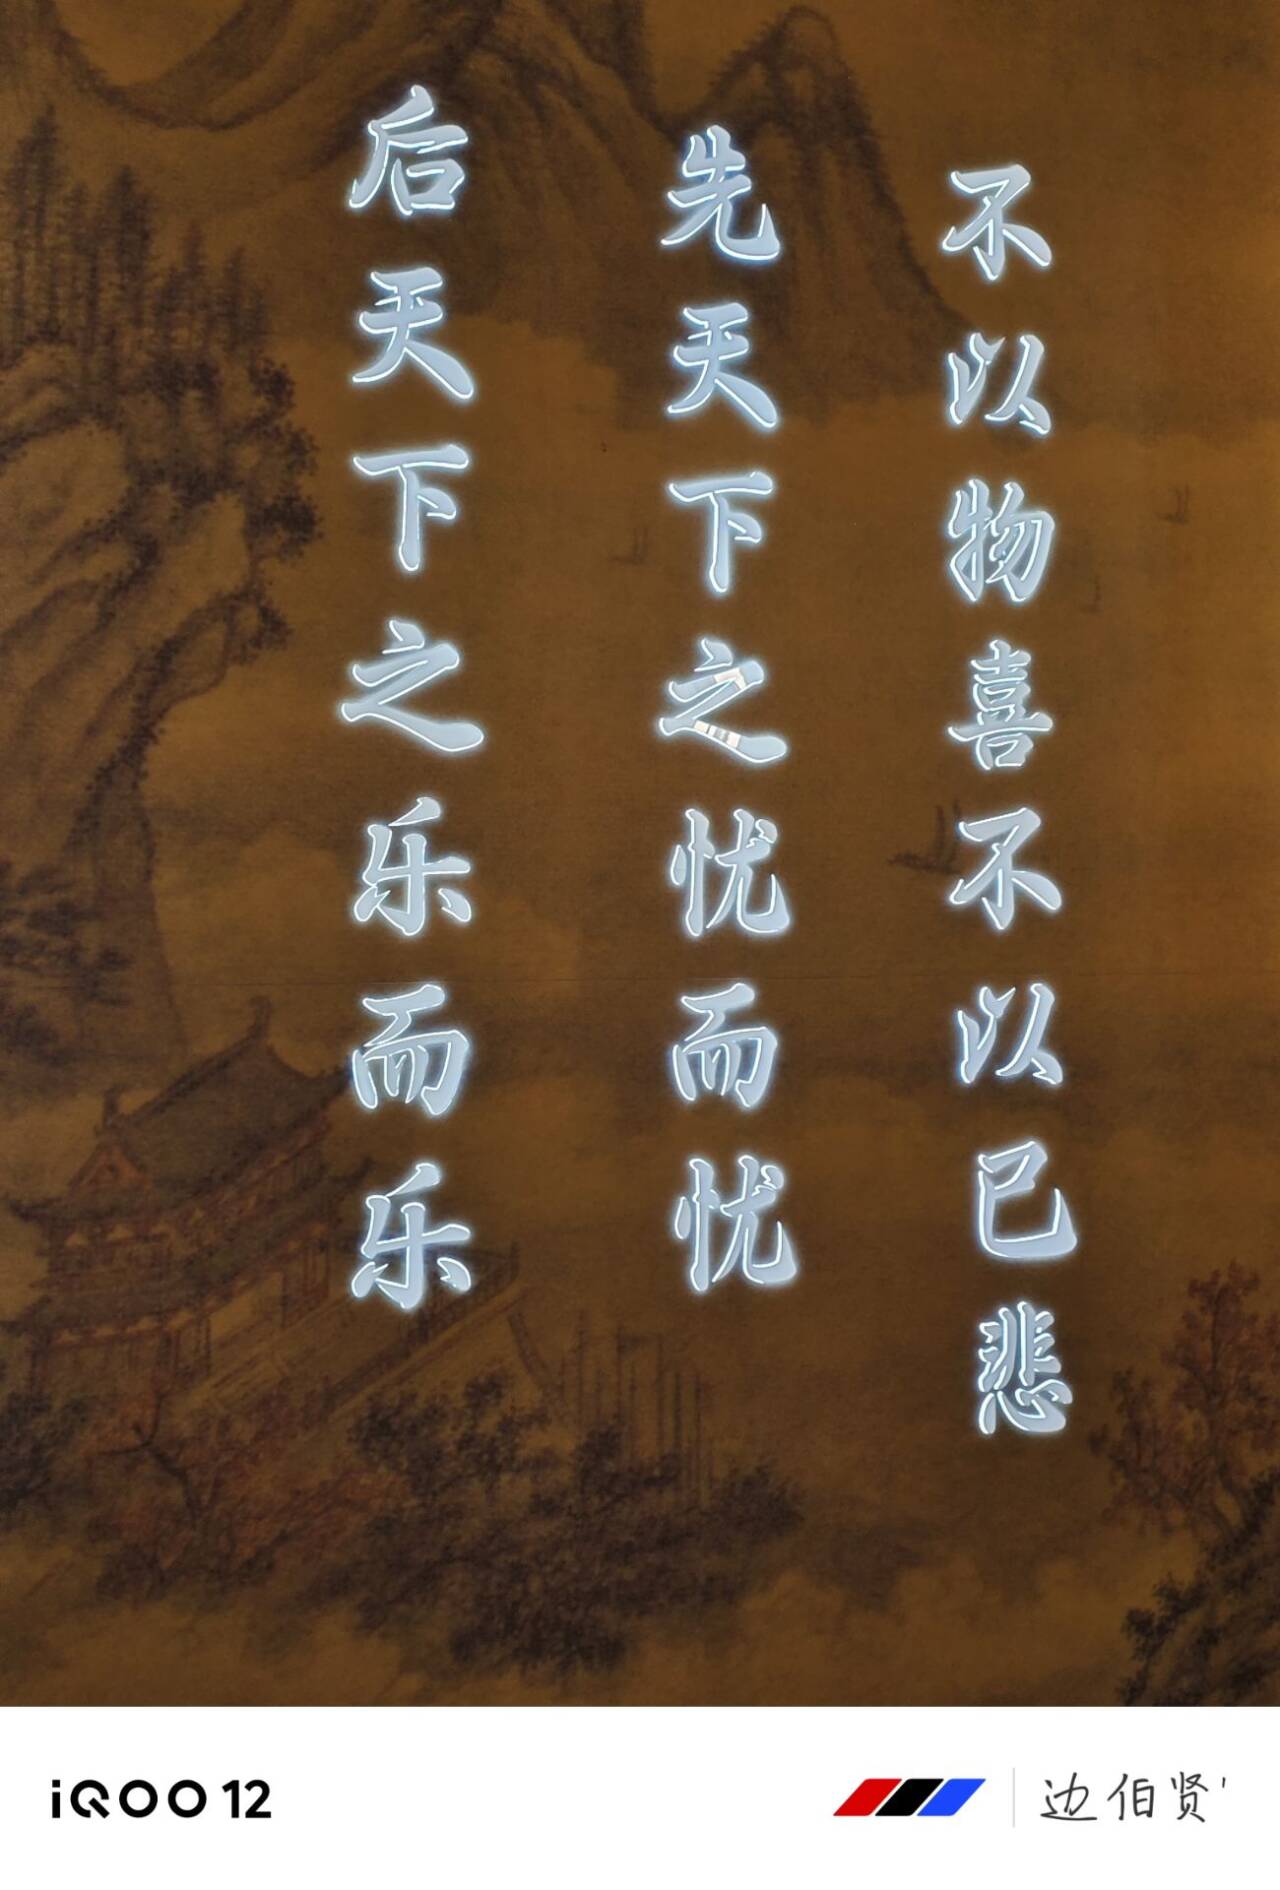 不以物喜不以已悲
先天下之忧而忧
后天下之乐而乐
iQOO 12
边伯贤'